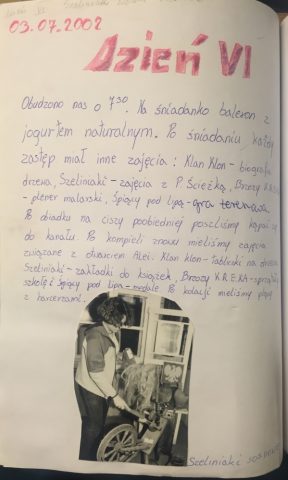 03.07.2002
Dzień VI
Obudzono nas o 7³⁰. Na śniadanko baleron z
jogurtem naturalnym. Po śniadaniu każdy
zastęp miał inne zajęcia: Klan Klon - biografia
drzewa, Szeliniaki - zajęcia z P. Ścieżką, Brzozy
- plener malarski, Śpiący pod lipą - gra terenowa.
Po obiadku na ciszy poobiedniej poszliśmy kąpać się
do kanału. Po kąpieli znowu mieliśmy zajęcia
związane z otwarciem Alei. Klan klon - tabliczki na drzewa
Szeliniaki - zakładki do książek, Brzozy K.R.E.K.A - sprzątały
szkołę i Śpiący pod lipą - medale. Po kolacji mieliśmy
z harcerzami.
Szeliniaki